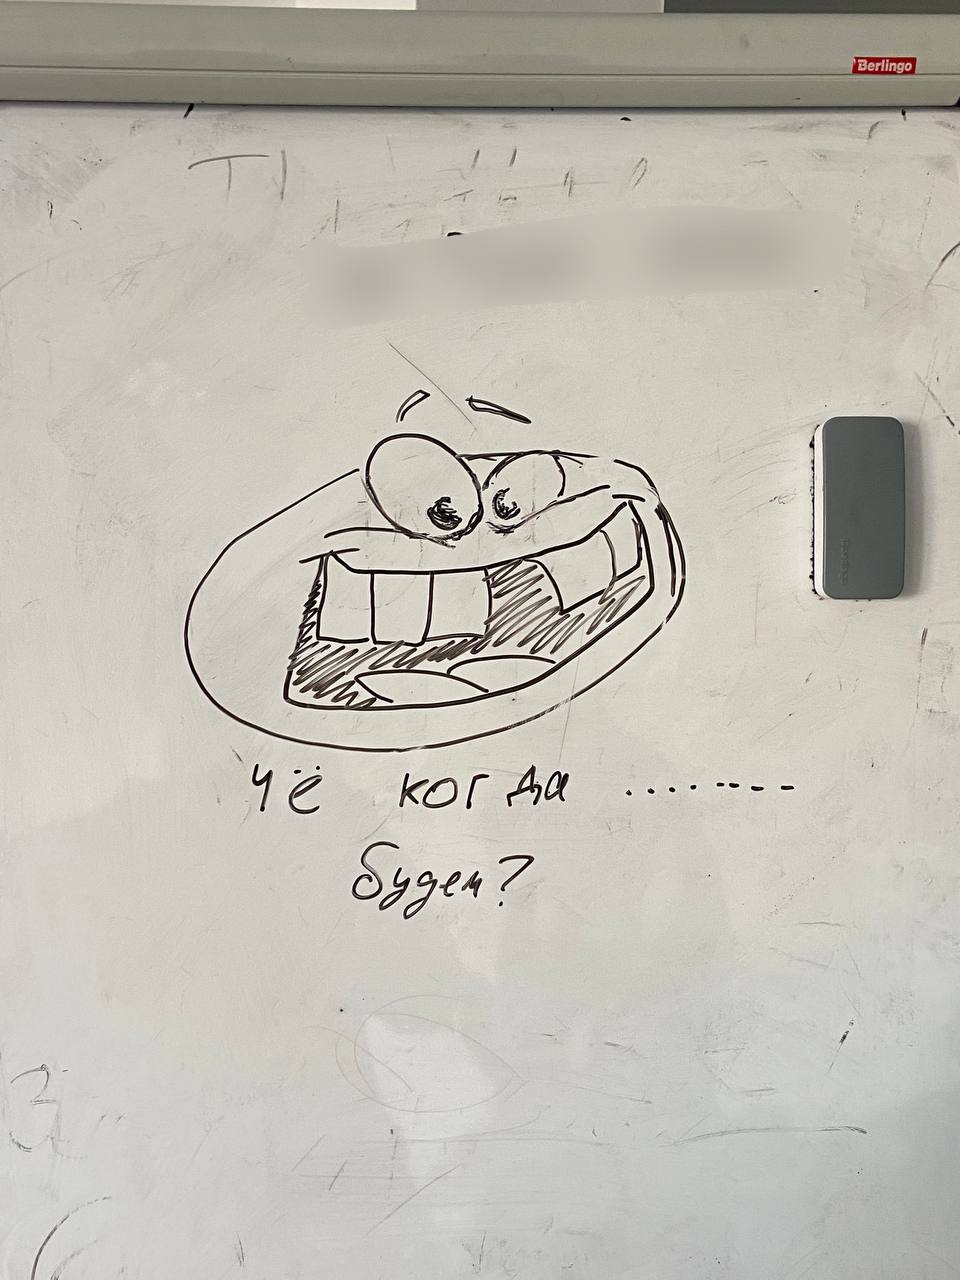 Berlingo
Чё когда ........
будем?